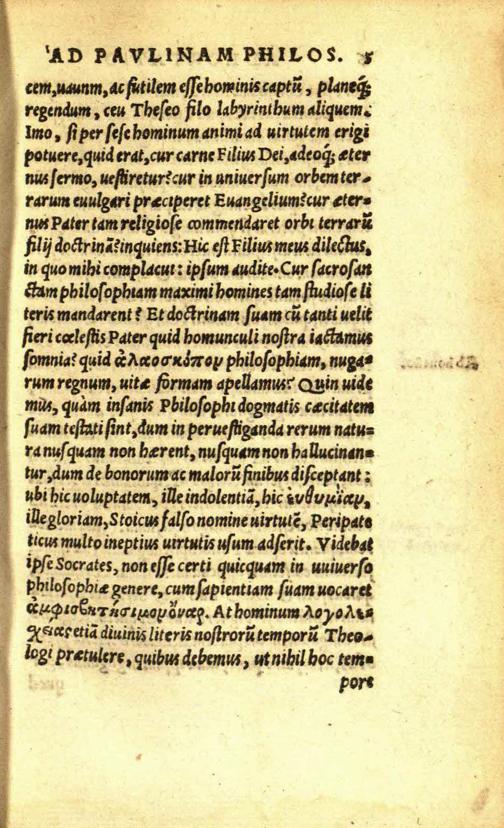 AD PAVLINAM PHILOS. 5
cem, uaunm, ac futilem esse hominis captū, planeq́;
regendum, ceu Theseo filo labyrinthum aliquem.
Imo, si per sese hominum animi ad uirtutem erigi
potuere, quid erat, cur carne Filius Dei, adeoq́; æter
nus sermo, uestiretur? cur in uniuersum orbem ter-
rarum euulgari præciperet Euangelium? cur æter=
nus Pater tam religiose commendaret orbi terrarū
filij doctrinā? inquiens: Hic est Filius meus dilectus,
in quo mihi complacui: ipsum audite. Cur sacrosan
ctam philosophiam maximi homines tam studiose li
teris mandarent? Et doctrinam suam cū tanti uelit
fieri cœlestis Pater quid homunculi nostra iactamus
somnia? quid ἀλαοσκόπον philosophiam, nuga=
rum regnum, uitæ formam apellamus? Quin uide
mus, quàm insanis Philosophi dogmatis cæcitatem
suam testati sint, dum in peruestiganda rerum natu=
ra nusquam non hærent, nusquam non hallucinan=
tur, dum de bonorum ac malorū finibus disceptant:
ubi hic uoluptatem, ille indolentiā, hic ἐυθυμίαν,
ille gloriam, Stoicus falso nomine uirtutē, Peripate
ticus multo ineptius uirtutis usum adserit. Videbat
ipse Socrates, non esse certi quicquam in uuiuerso
philosophiæ genere, cum sapientiam suam uocaret
ἀμφισβητήσιμον ὄναρ. At hominum λογολε=
χείας etiā diuinis literis nostrorū temporū Theo-
logi prætulere, quibus debemus, ut nihil hoc tem=
pore